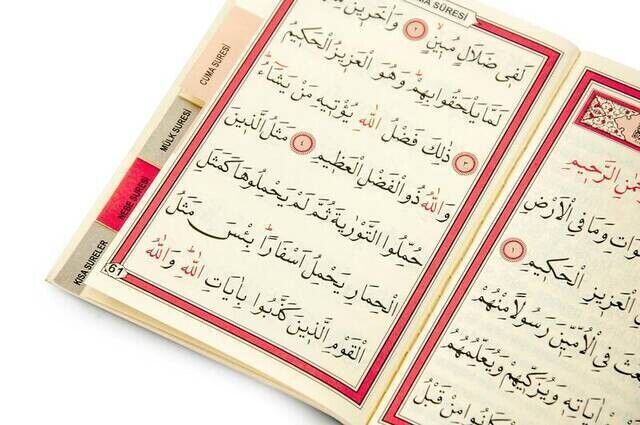 الرَّحِيمِ
وَمَا فِي الْاَرْضِ
الْعَزِيزِ الْحَكِيمِ ١
فِي الْاُمِّيّنَ رَسُولًا مِنْهُمْ
اٰيَاتِهِ وَيُزَكِّيهِمْ وَيُعَلِّمُهُمُ
كَانُوا مِنْ قَبْلُ
SÛRESİ
لَفِى ضَلَالٍ مُبِينٍ ٢ وَاٰخَرِينَ
لَمَّا يَلْحَقُوا بِهِمْ وَهُوَ الْعَزِيزُ الْحَكِيمُ
٣ ذٰلِكَ فَضْلُ اللّٰهِ يُؤْتِيهِ مَنْ يَشَٓاءُ
وَاللّٰهُ ذُو الْفَضْلِ الْعَظِيمِ ٤ مَثَلُ الَّذِينَ
حُمِّلُوا التَّوْرٰيةَ ثُمَّ لَمْ يَحْمِلُوهَا كَمَثَلِ
الْحِمَارِ يَحْمِلُ اَسْفَارًا بِئْسَ مَثَلُ
الْقَوْمِ الَّذِينَ كَذَّبُوا بِاٰيَاتِ اللّٰهِ وَاللّٰهُ
61
CUMA SURESİ
MÜLK SURESİ
NEBE SURESİ
KISA SURELER